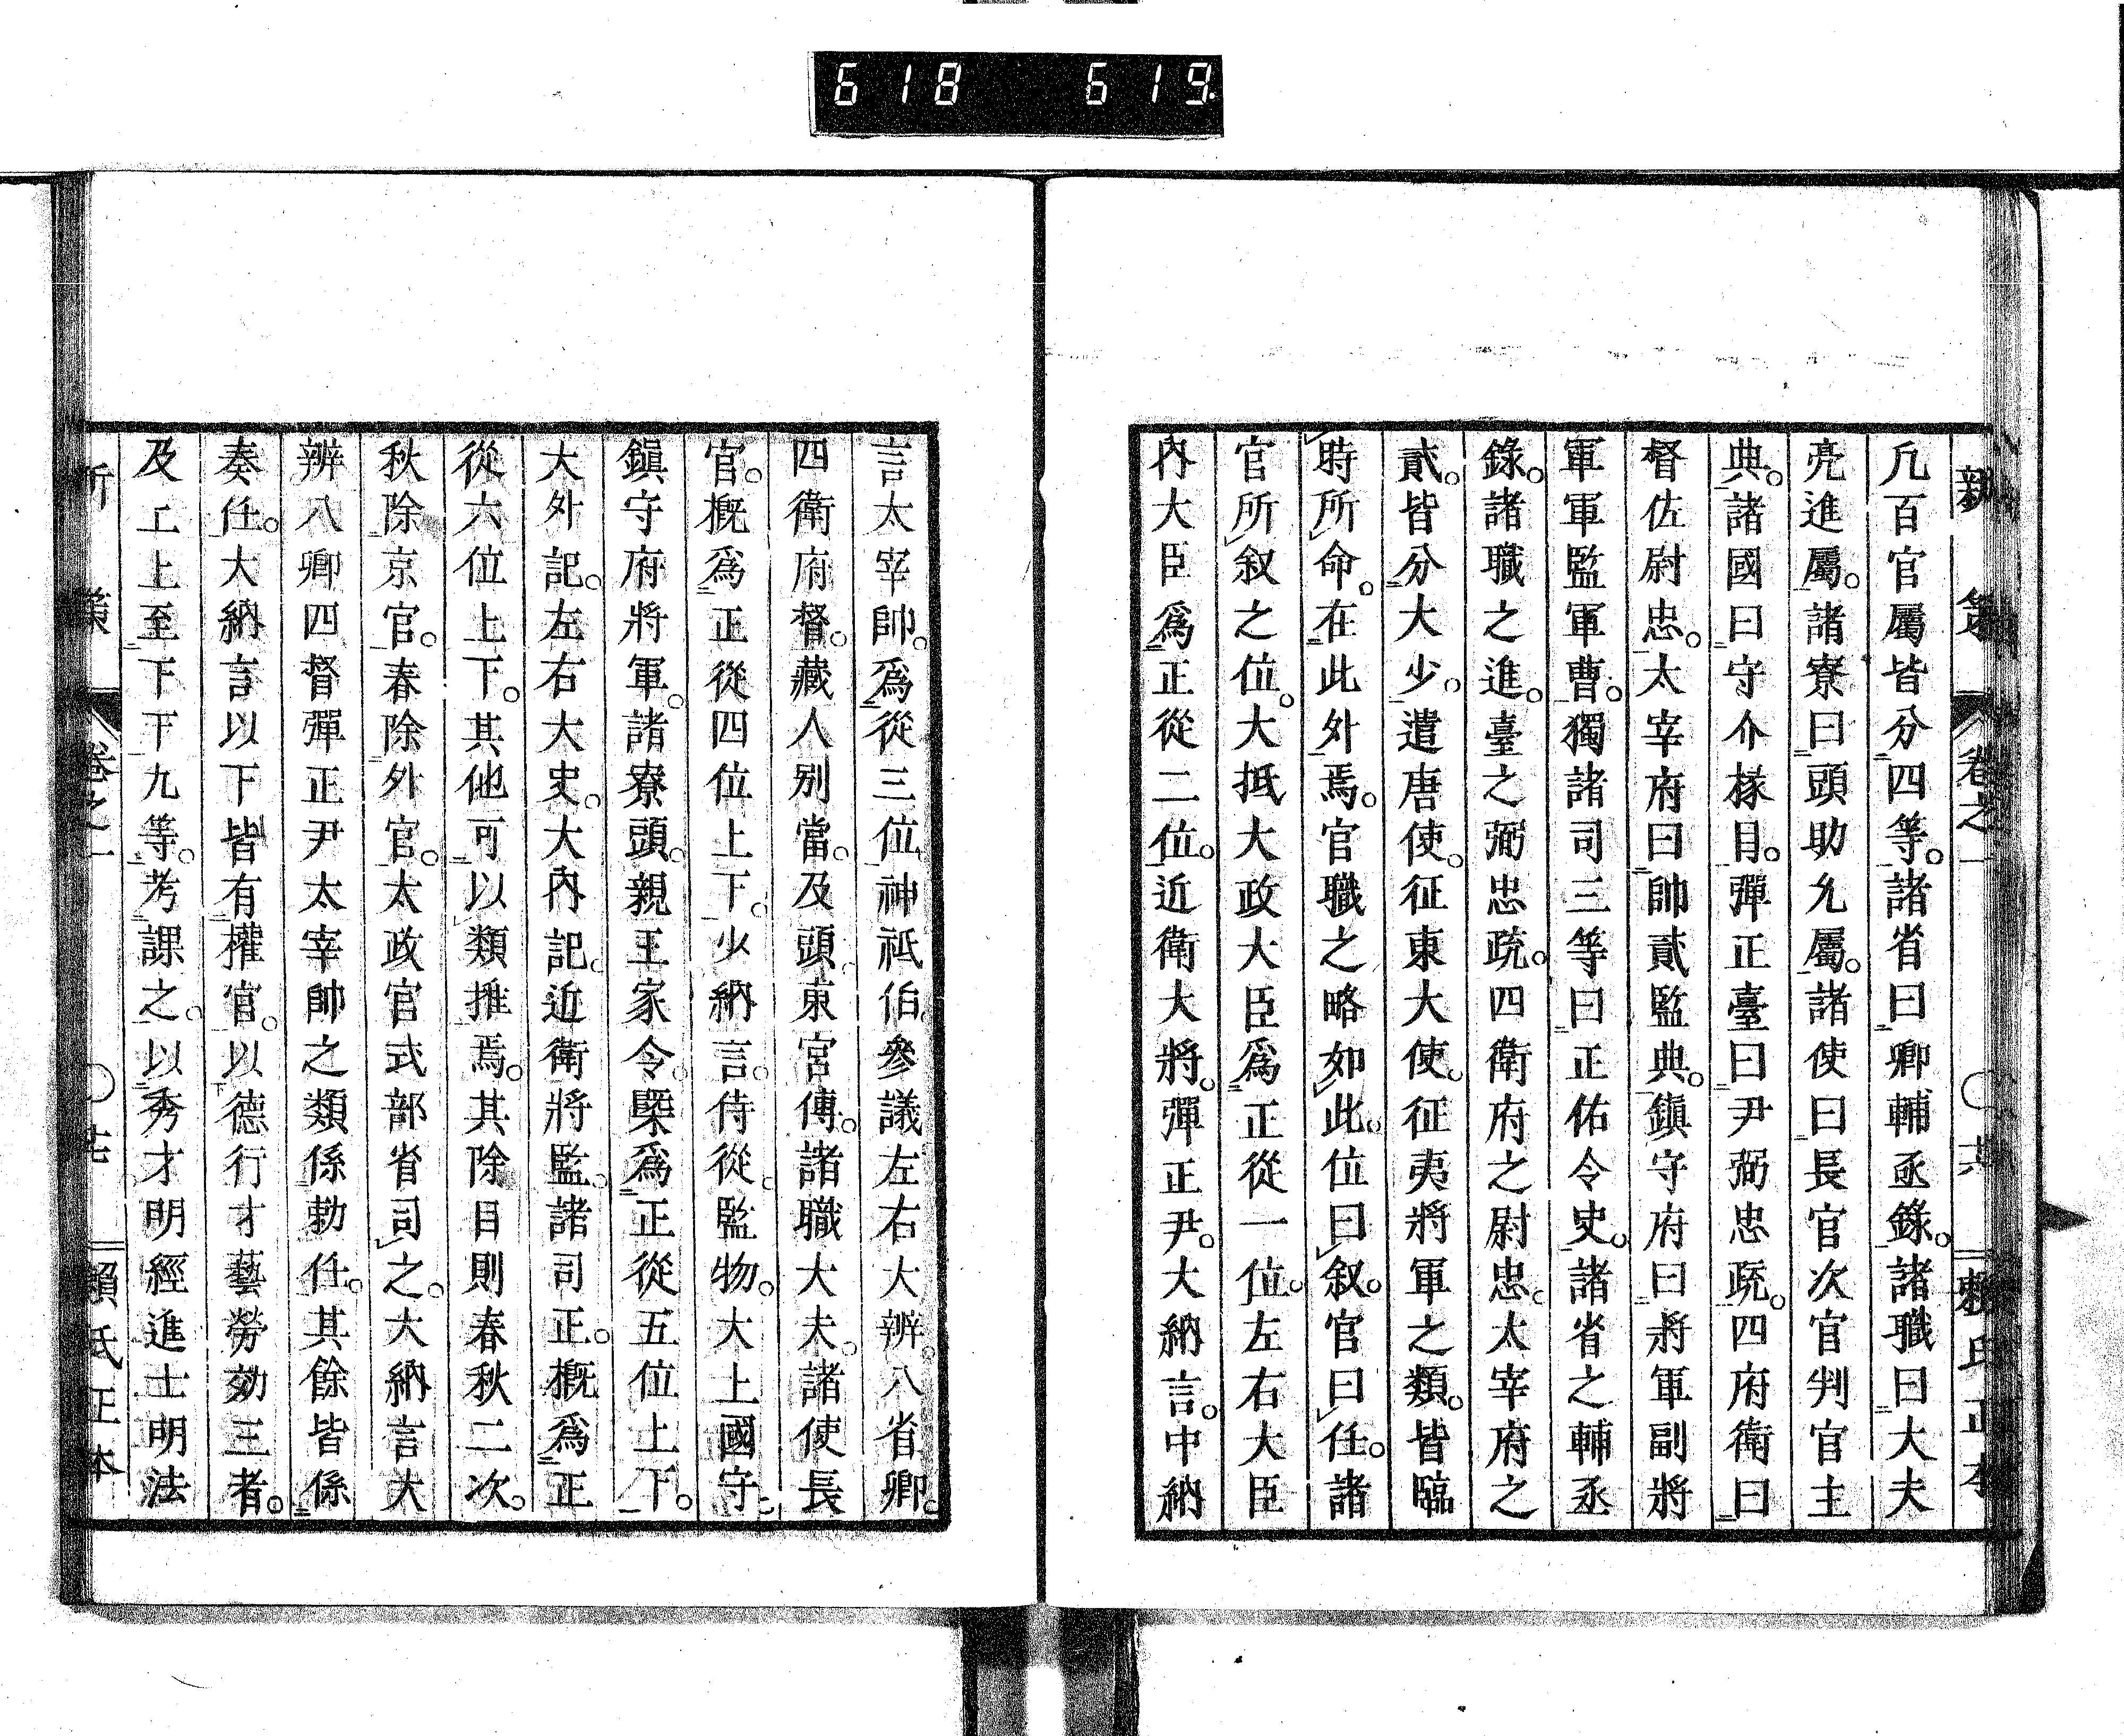 618 619
新策 卷之一 ○ 共 賴氏正本
凢百官屬皆分四等。諸省曰卿輔丞錄。諸職曰大夫
亮進屬。諸寮曰頭助允屬。諸使曰長官次官判官主
典。諸國曰守介椽目。彈正臺曰尹弼忠疏。四府衛曰
督佐尉忠。太宰府曰帥貳監典。鎭守府曰將軍副將
軍軍監軍曹。獨諸司三等曰正佑令史。諸省之輔丞
錄。諸職之進。臺之弼忠疏。四衛府之尉忠。太宰府之
貳。皆分大少。遣唐使。征東大使。征夷將軍之類。皆臨
時所命。在此外焉。官職之略如此。位曰叙。官曰任。諸
官所叙之位。大抵大政大臣爲正從一位。左右大臣
內大臣爲正從二位。近衛大將。彈正尹。大納言。中納
言太宰帥。爲從三位神祇伯。參議左右大辨。八省卿。
四衛府督。藏人別當。及頭東宮傅。諸職大夫。諸使長
官。概爲正從四位上下。少納言。侍從。監物。大上國守。
鎭守府將軍。諸寮頭。親王家令。槩爲正從五位上下。
大外記。左右大史。大內記。近衛將監。諸司正。概爲正
從六位上下。其他可以類推焉。其除目則春秋二次。
秋除京官。春除外官。太政官式部省司之。大納言大
辨八卿四督彈正尹太宰帥之類係勅任。其餘皆係
奏任。大納言以下皆有權官。以德行才藝勞効三者。
及上上至下下九等。考課之。以秀才明經進士明法
新策 卷之一 ○ 賴氏正本